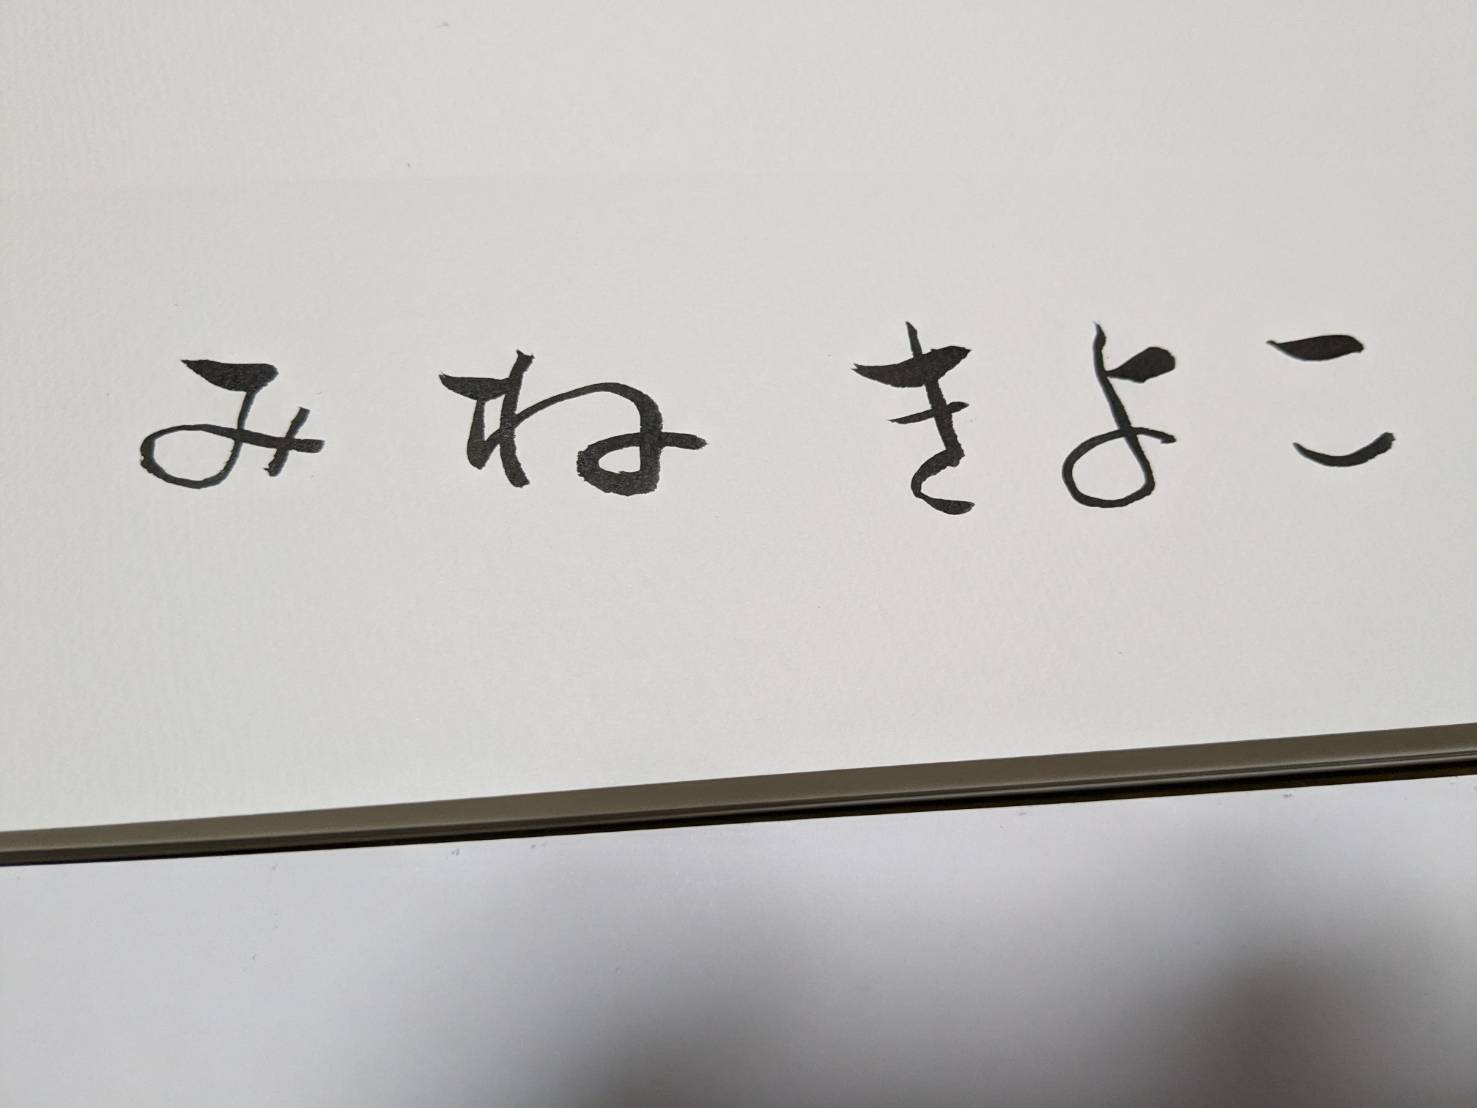 みね きよこ